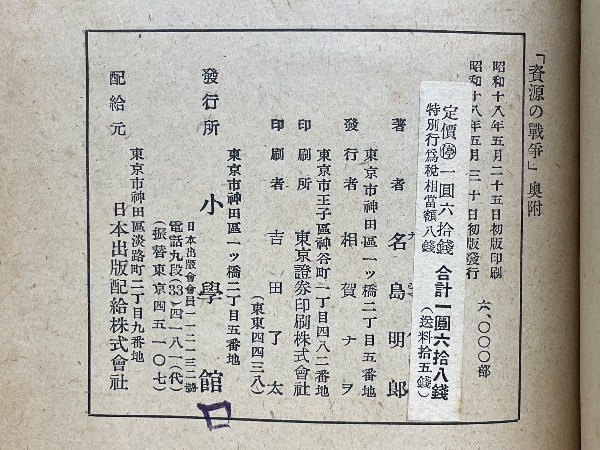 「資源の戰爭」奥附
昭和十八年五月二十五日初版印刷
昭和十八年五月三十日初版發行
六、〇〇〇部
定價㊡一圓六拾錢
特別行爲税相當額八錢
合計一圓六拾八錢
(送料拾五錢)
著者 名島明郎
東京市神田區一ッ橋二丁目五番地
發行者 相賀ナヲ
東京市王子區神谷町一丁目四八二番地
印刷所 東京證券印刷株式會社
印刷者 吉田了太
(東東四四三八)
東京市神田區一ッ橋二丁目五番地
發行所 小學館
日本出版會會員一一二一三二號
電話九段(33)四一八一(代)
(振替東京四五一〇七)
東京市神田區淡路町二丁目九番地
配給元 日本出版配給株式會社